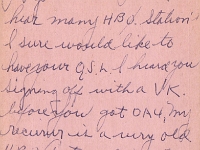 hear many H.B.O. Station
I sure would like to
have your Q.S.L. I heard you
signing off with a V.K.
before you got OA4, my
receiver is a very old